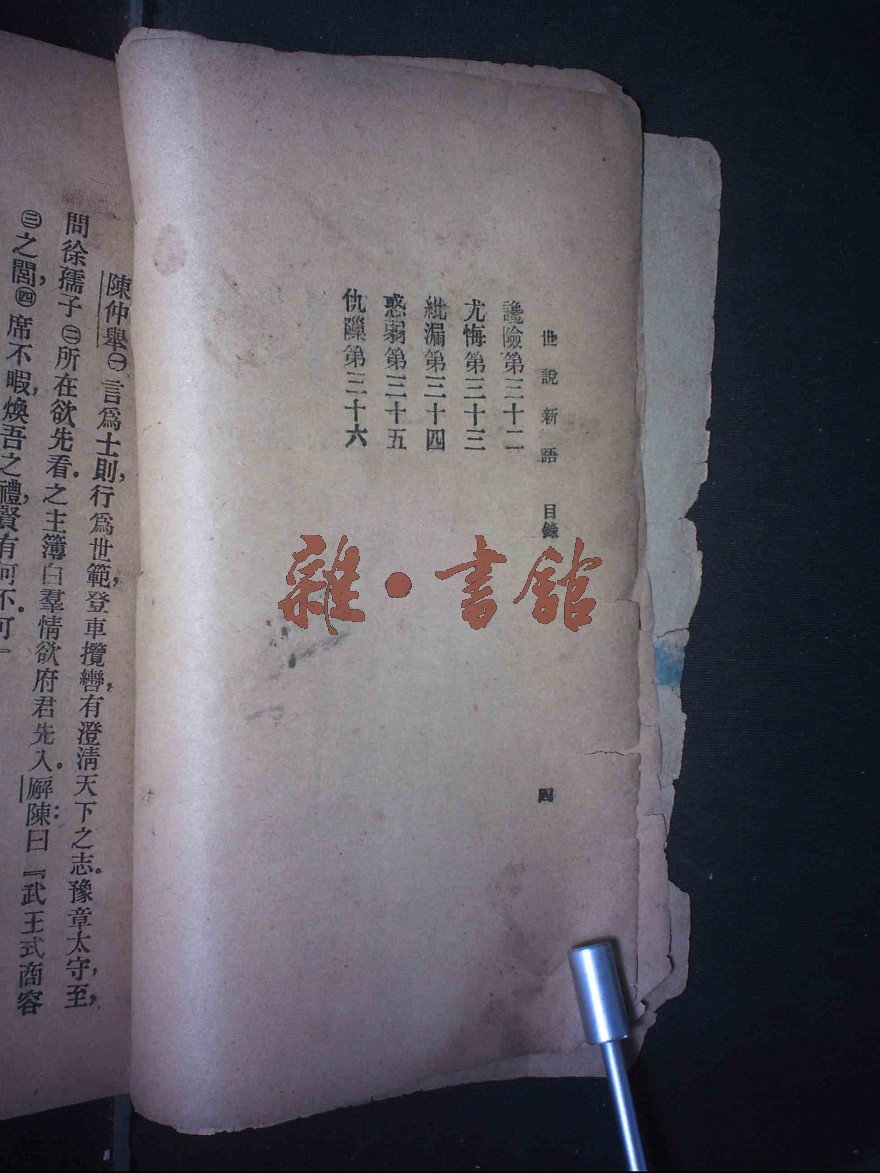 世說新語 目錄 四
讒險第三十二
尤悔第三十三
紕漏第三十四
惑弱第三十五
仇隟第三十六
雜·書館
陳仲舉㊀言爲士則，行爲世範，登車攬轡，有澄清天下之志。豫章太守，至，
問徐孺子㊁所在欲先看之主簿白羣情欲府君先入。廨陳曰：『武王式商容
㊂之閭，㊃席不暇煥吾之禮賢有何不可